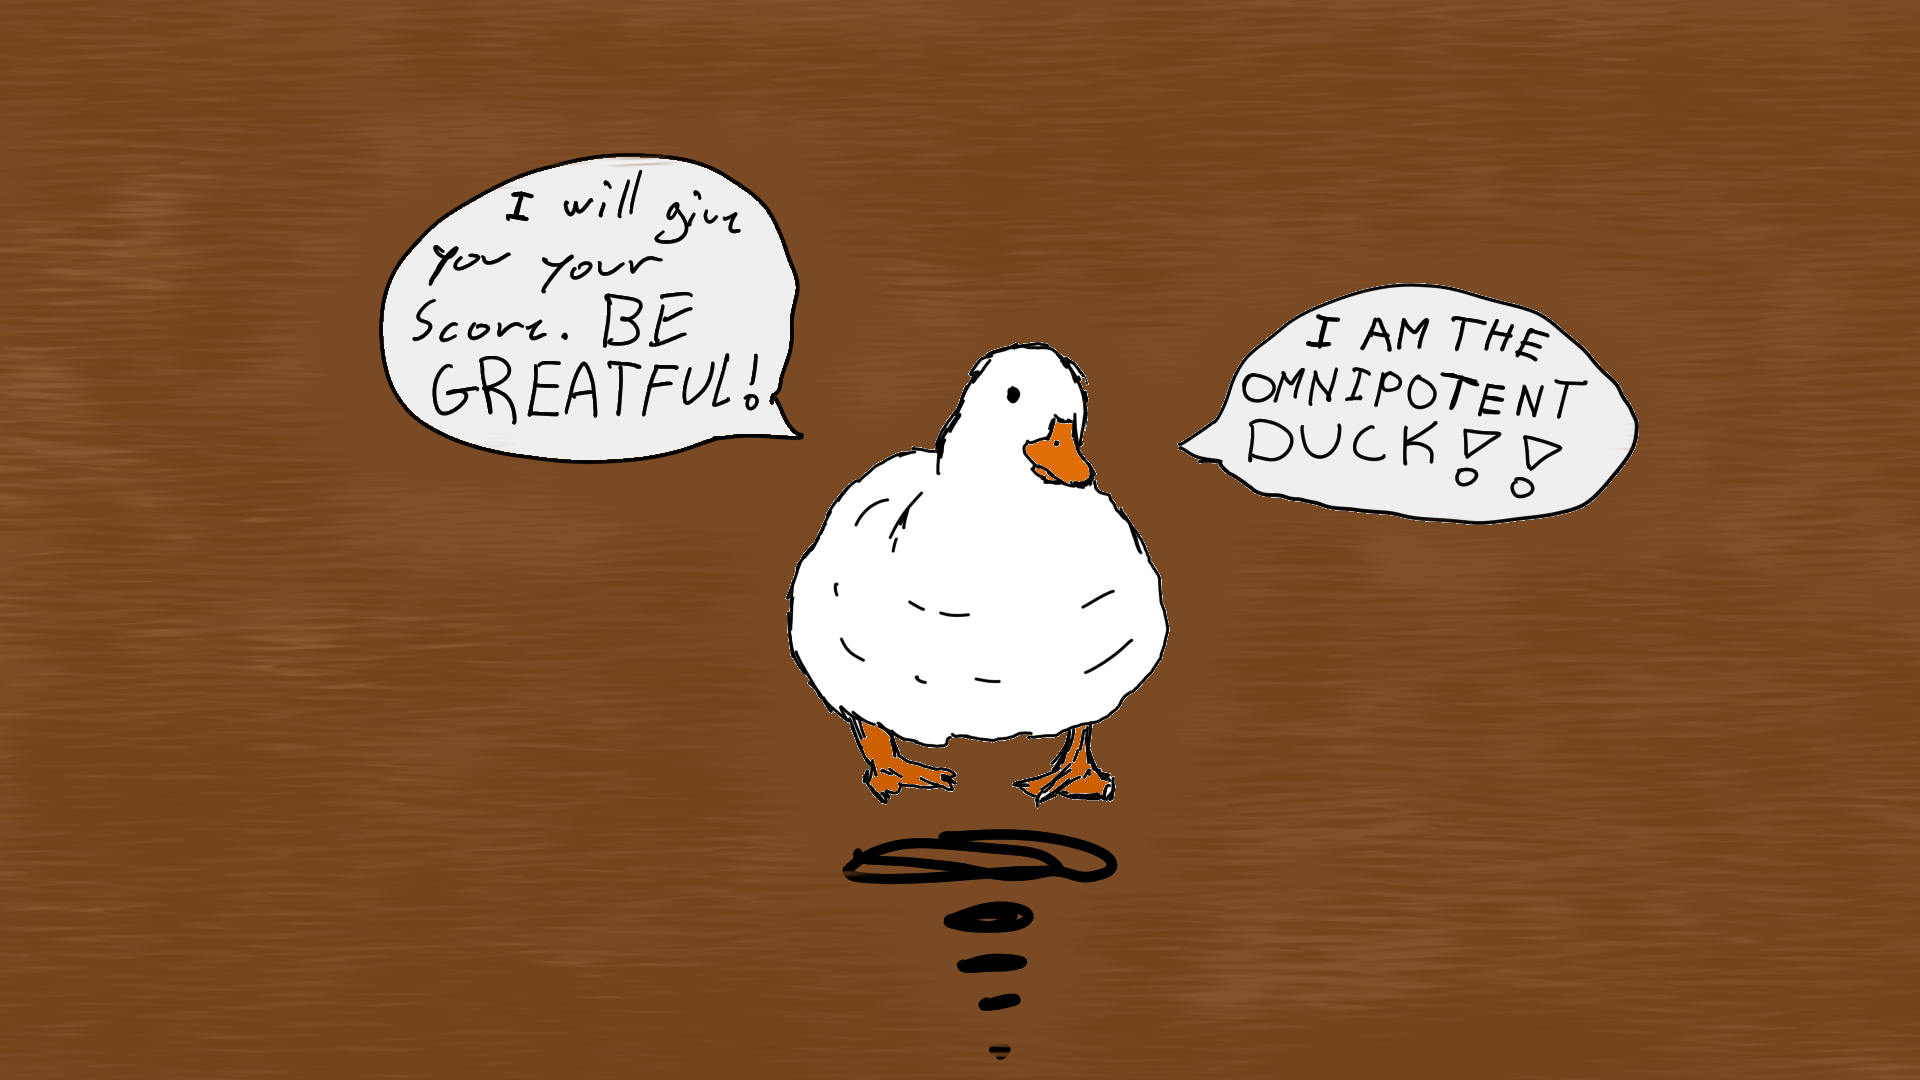 I will give
you your
score. BE
GREATFUL!
I AM THE
OMNIPOTENT
DUCK!!